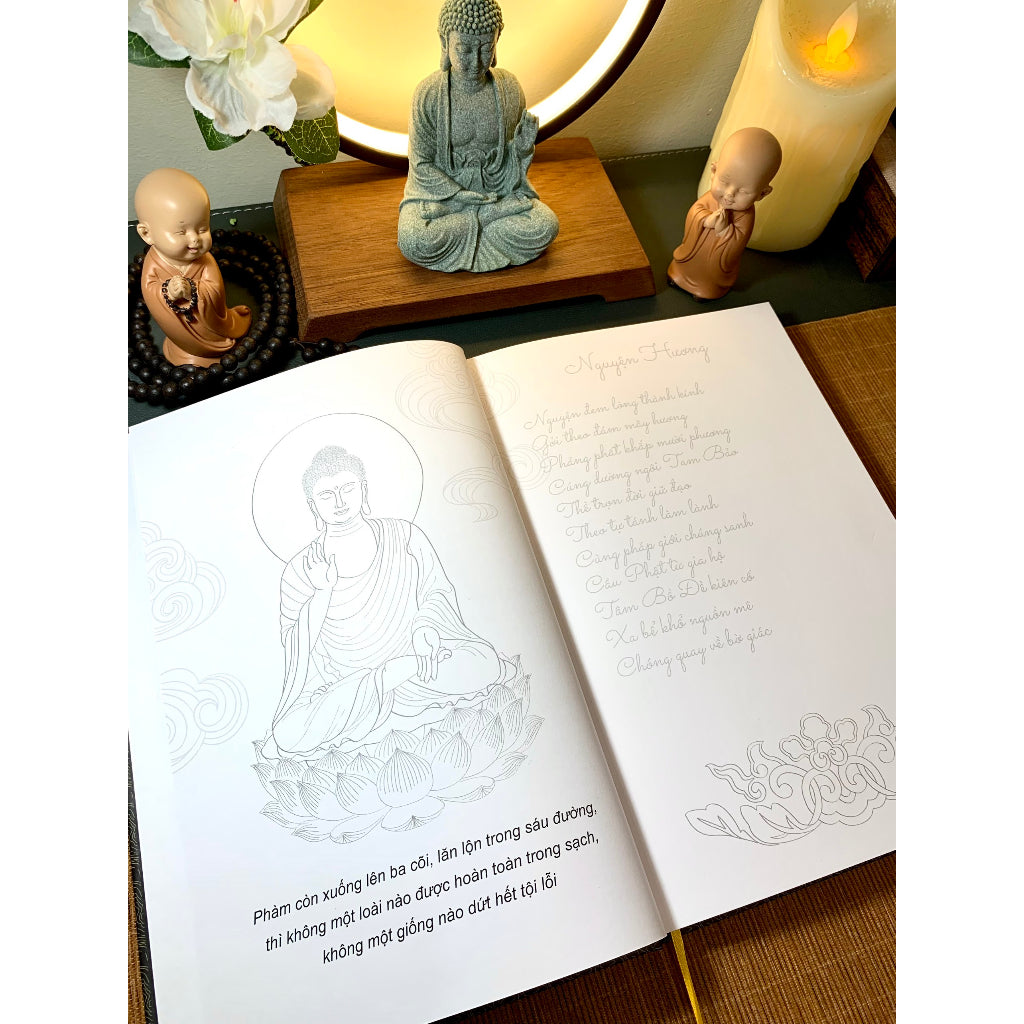 Phàm còn xuống lên ba cõi, lăn lộn trong sáu đường,
thì không một loài nào được hoàn toàn trong sạch,
không một giống nào dứt hết tội lỗi
Nguyện Hương
Nguyện đem lòng thành kính
Gởi theo đám mây hương
Phảng phất khắp mười phương
Cúng dường ngôi Tam Bảo
Thề trọn đời giữ đạo
Theo tự tánh làm lành
Cùng pháp giới chúng sanh
Cầu Phật từ gia hộ
Tâm Bồ Đề kiên cố
Xa bể khổ nguồn mê
Chóng quay về bờ giác